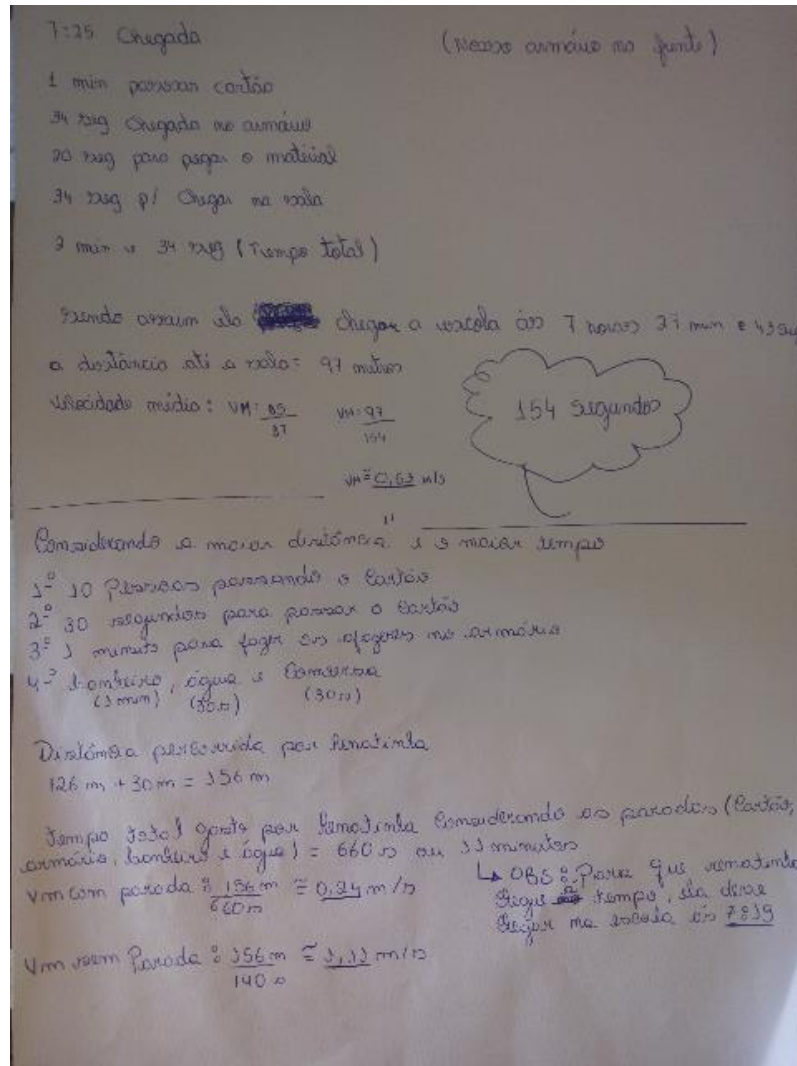 7:25 Chegada (Nosso armário na frente)
1 min passar cartão
34 seg Chegada no armário
20 seg para pegar o material
34 seg p/ Chegar na sala
2 min e 34 seg (Tempo total)
Sendo assim ela chegar a escola às 7 horas 27 min e
a distância até a sala: 97 metros
velocidade média: VM: 85/37 VM: 97/154
154 segundos
VM ≅ 0,63 m/s
Considerando a maior distância e o maior tempo
1º 10 Pessoas passando o Cartão
2º 30 segundos para passar o Cartão
3º 1 minuto para fazer os afazeres no armário
4º banheiro, água e Conversa
(1 min) (30s) (30s)
Distância percorrida por Renatinha
126 m + 30 m = 156 m
Tempo total gasto por Renatinha Considerando as paradas (Cartão,
armário, banheiro e água) = 660 s ou 11 minutos
Vm com parada: 156 m/660 s ≅ 0,24 m/s
↳ OBS: Para que renatinha
chegue tempo, ela deve
chegar na escola às 7:19
Vm sem Parada: 156 m/140 s ≅ 1,11 m/s